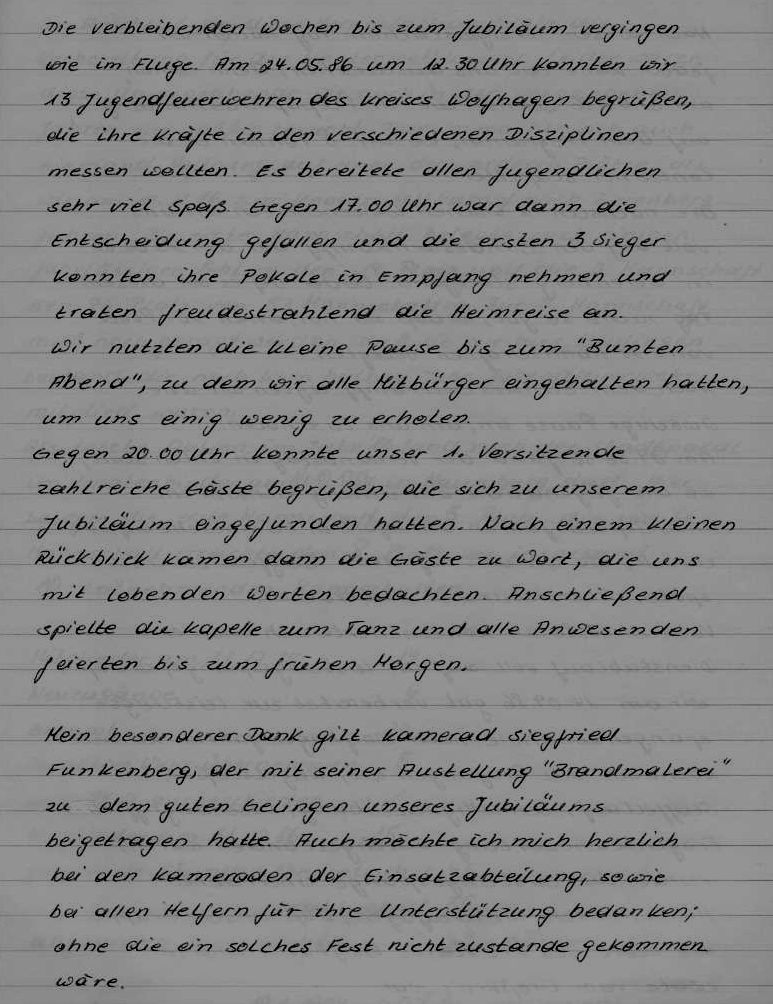 Die verbleibenden Wochen bis zum Jubiläum vergingen
wie im Fluge. Am 24.05.86 um 12.30 Uhr konnten wir
13 Jugendfeuerwehren des Kreises Wolfhagen begrüßen,
die ihre Kräfte in den verschiedenen Disziplinen
messen wollten. Es bereitete allen Jugendlichen
sehr viel Spaß. Gegen 17.00 Uhr war dann die
Entscheidung gefallen und die ersten 3 Sieger
konnten ihre Pokale in Empfang nehmen und
traten freudestrahlend die Heimreise an.
Wir nutzten die kleine Pause bis zum "Bunten
Abend", zu dem wir alle Mitbürger eingehalten hatten,
um uns einig wenig zu erholen.
Gegen 20.00 Uhr konnte unser 1. Vorsitzende
zahlreiche Gäste begrüßen, die sich zu unserem
Jubiläum eingefunden hatten. Nach einem kleinen
Rückblick kamen dann die Gäste zu Wort, die uns
mit lobenden Worten bedachten. Anschließend
spielte die Kapelle zum Tanz und alle Anwesenden
feierten bis zum frühen Morgen.
Mein besonderer Dank gilt Kamerad Siegfried
Funkenberg, der mit seiner Austellung "Brandmalerei"
zu dem guten Gelingen unseres Jubiläums
beigetragen hatte. Auch möchte ich mich herzlich
bei den Kameraden der Einsatzabteilung, sowie
bei allen Helfern für ihre Unterstützung bedanken;
ohne die ein solches Fest nicht zustande gekommen
wäre.